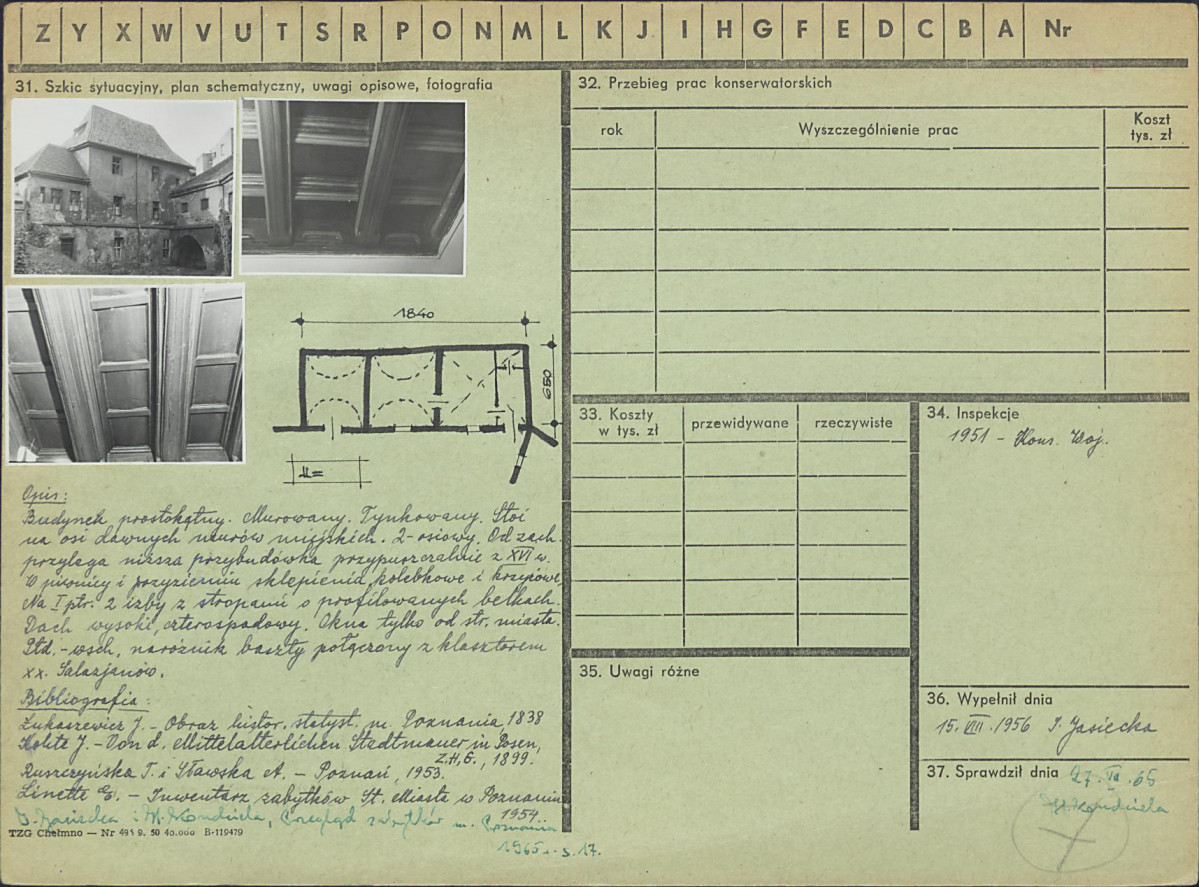 Z Y X W V U T S R P O N M L K J I H G F E D C B A Nr
31. Szkic sytuacyjny, plan schematyczny, uwagi opisowe, fotografia
1840
680
Opis:
Budynek prostokątny. Murowany. Tynkowany. Stoi
na osi dawnych murów miejskich. 2-osiowy. Od zach.
przylega niższa przybudówka przypuszczalnie z XVI w.
W piwnicy i przyziemiu sklepienia kolebkowe i krzyżowe.
Na I ptr. 2 izby z stropami o profilowanych belkach.
Dach wysoki, czterospadowy. Okna tylko od str. miasta.
Płd.-wsch. narożnik baszty połączony z klasztorem
xx. Salezjanów.
Bibliografia:
Łukaszewicz J. - Obraz histor. statyst. m. Poznania, 1838
Kohte J. - Von d. Mittelalterlichen Stadtmauer in Posen,
Z.H.G., 1899.
Ruszczyńska T. i Sławska A. - Poznań, 1953.
Linette E. - Inwentarz zabytków St. Miasta w Poznaniu
1954.
I. Jasiecka i H. Kondziela, Przegląd zabytków m. Poznania
1965 r. s. 17.
TZG Chełmno — Nr 495 9. 50 40.000 B-119479
32. Przebieg prac konserwatorskich
rok
Wyszczególnienie prac
Koszt
tys. zł
33. Koszty
w tys. zł
przewidywane
rzeczywiste
34. Inspekcje
1951 - Kons. Woj.
35. Uwagi różne
36. Wypełnił dnia
15. VIII. 1956 I. Jasiecka
37. Sprawdził dnia
27. 65
H. Kondziela